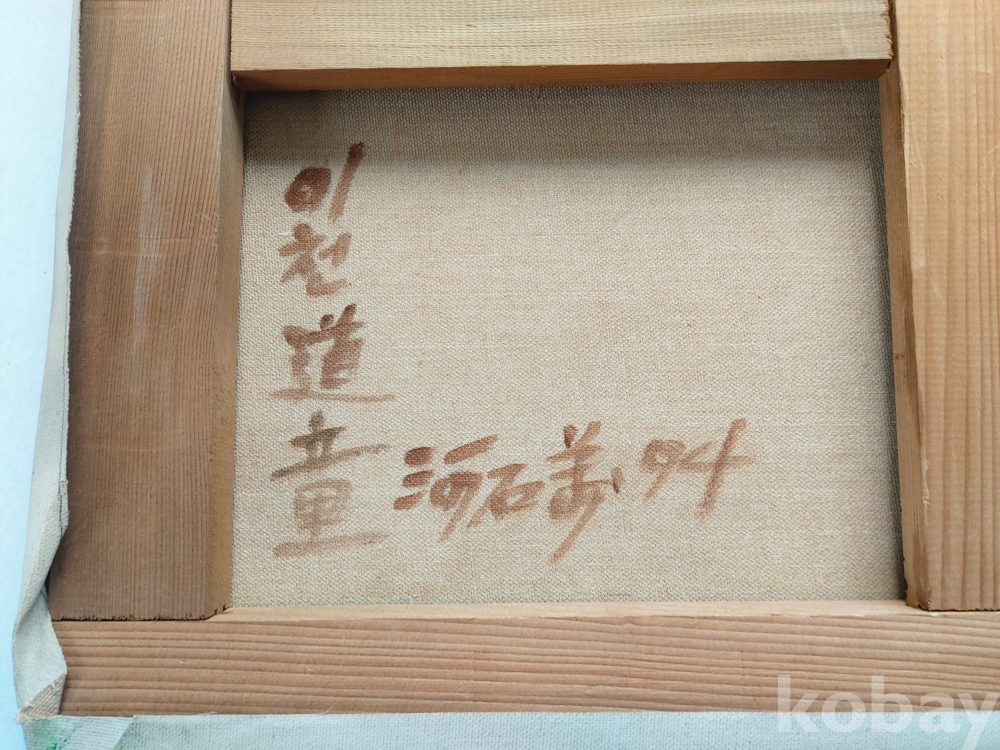 이천道童
河石 94
kobay